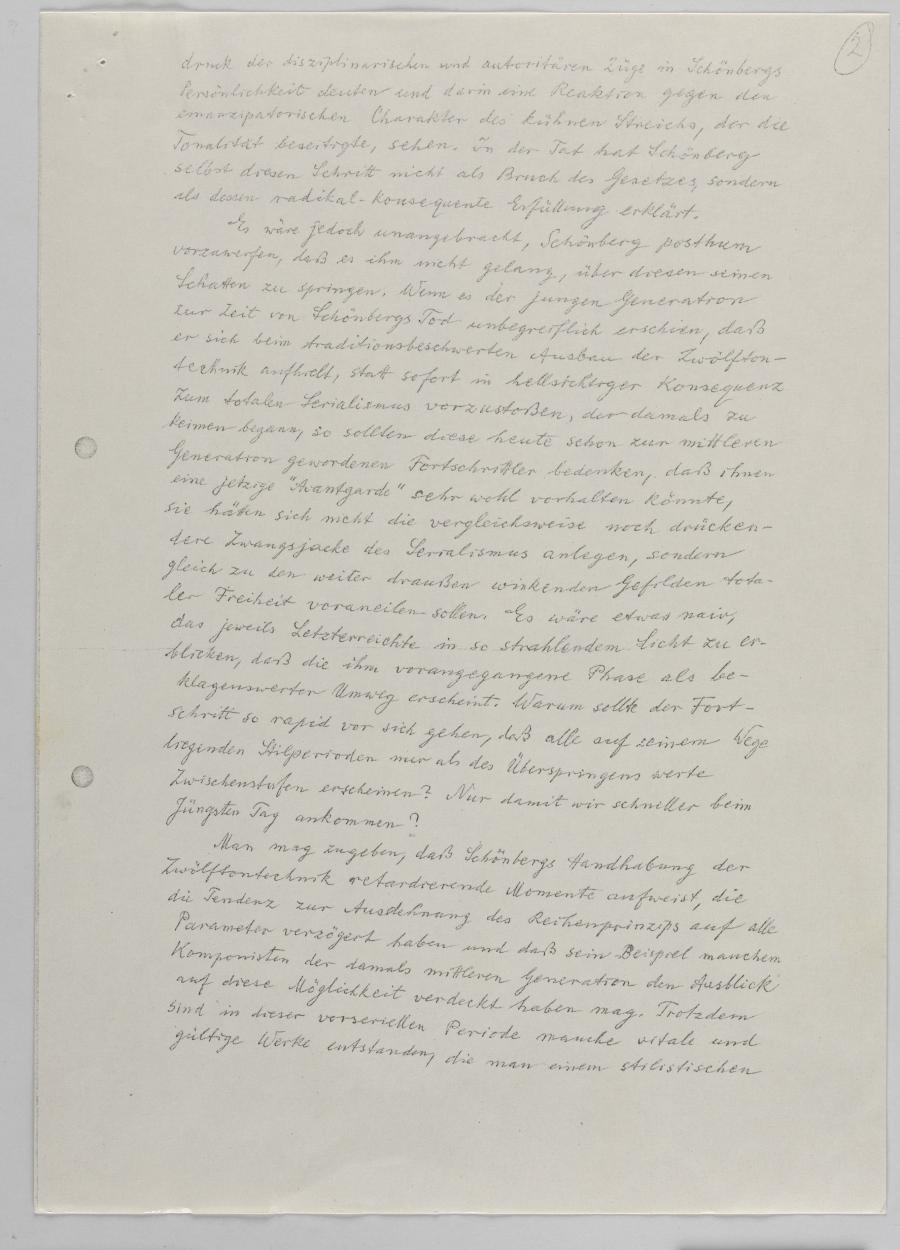 2
druck der disziplinarischen und autoritären Züge in Schönbergs
Persönlichkeit deuten und darin eine Reaktion gegen den
emanzipatorischen Charakter des kühnen Streichs, der die
Tonalität beseitigte, sehen. In der Tat hat Schönberg
selbst diesen Schritt nicht als Bruch des Gesetzes, sondern
als dessen radikal-konsequente Erfüllung erklärt.
Es wäre jedoch unangebracht, Schönberg posthum
vorzuwerfen, daß es ihm nicht gelang, über diesen seinen
Schatten zu springen. Wenn es der jungen Generation
zur Zeit von Schönbergs Tod unbegreiflich erschien, daß
er sich beim traditionsbeschwerten Ausbau der Zwölfton-
technik aufhielt, statt sofort in hellsichtiger Konsequenz
zum totalen Serialismus vorzustoßen, der damals zu
keimen begann, so sollten diese heute schon zur mittleren
Generation gewordenen Fortschrittler bedenken, daß ihnen
eine jetzige "Avantgarde" sehr wohl vorhalten könnte,
sie hätten sich nicht die vergleichsweise noch drücken-
dere Zwangsjacke des Serialismus anlegen, sondern
gleich zu den weiter draußen winkenden Gefilden tota-
ler Freiheit voraneilen sollen. Es wäre etwas naiv,
das jeweils Letzterreichte in so strahlendem Licht zu er-
blicken, daß die ihm vorangegangene Phase als be-
klagenswerter Umweg erscheint. Warum sollte der Fort-
schritt so rapid vor sich gehen, daß alle auf seinem Wege
liegenden Stilperioden nur als des Überspringens werte
Zwischenstufen erscheinen? Nur damit wir schneller beim
Jüngsten Tag ankommen?
Man mag zugeben, daß Schönbergs Handhabung der
Zwölftontechnik retardierende Momente aufweist, die
die Tendenz zur Ausdehnung des Reihenprinzips auf alle
Parameter verzögert haben und daß sein Beispiel manchem
Komponisten der damals mittleren Generation den Ausblick
auf diese Möglichkeit verdeckt haben mag. Trotzdem
sind in dieser vorseriellen Periode manche vitale und
gültige Werke entstanden, die man einem stilistischen